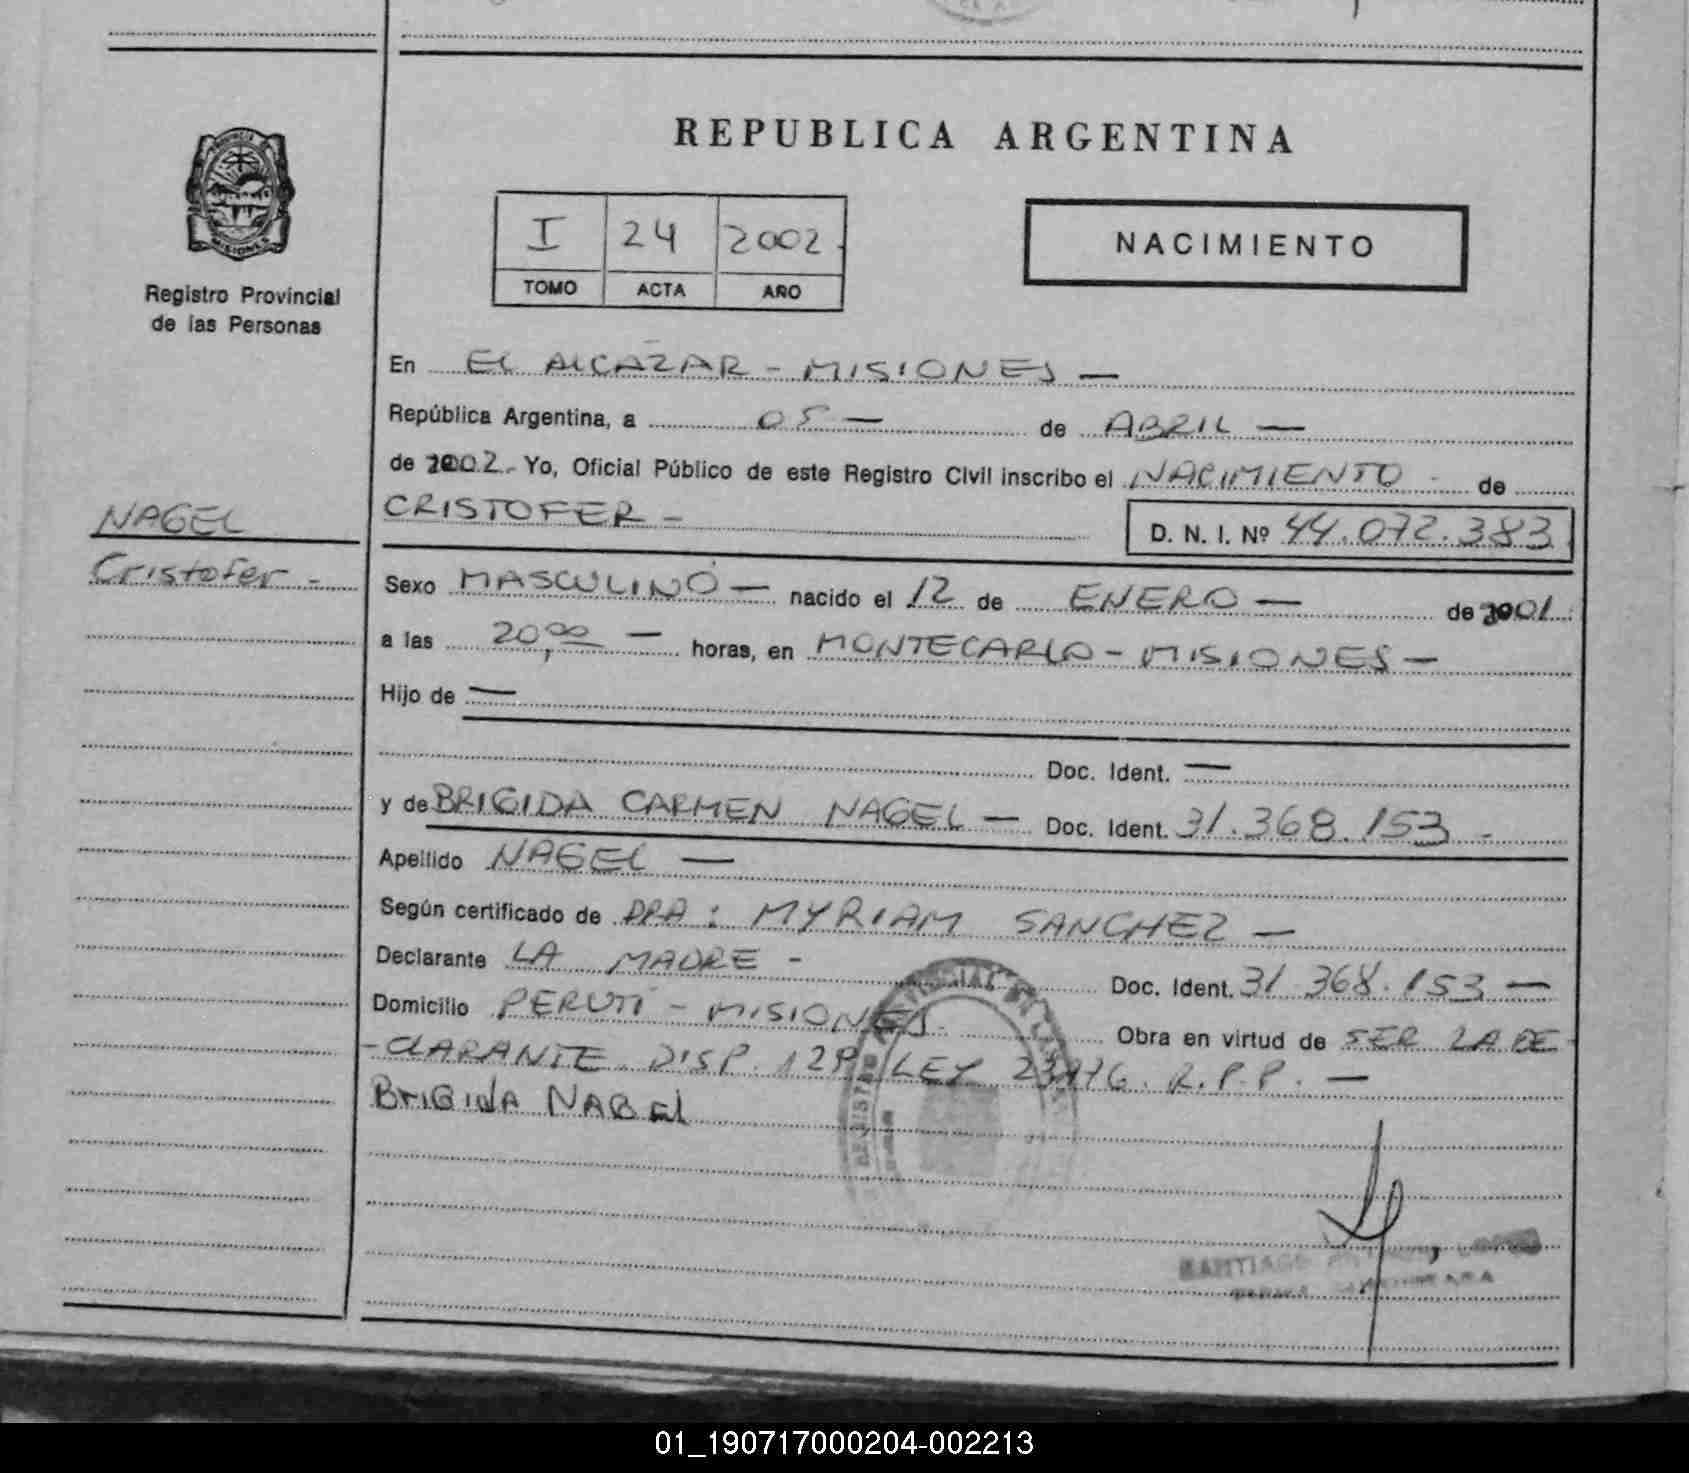 REPUBLICA ARGENTINA
I 24 2002
TOMO ACTA AÑO
NACIMIENTO
PROVINCIA DE
MISIONES
Registro Provincial
de las Personas
NAGEL
Cristofer -
En EL ALCAZAR - MISIONES —
República Argentina, a 05 — de ABRIL —
de 2002.- Yo, Oficial Público de este Registro Civil inscribo el NACIMIENTO - de
CRISTOFER - D. N. I. Nº 44.072.383
Sexo MASCULINO — nacido el 12 de ENERO — de 2001
a las 20,00 — horas, en MONTECARLO - MISIONES —
Hijo de —
Doc. Ident. —
y de BRIGIDA CARMEN NAGEL — Doc. Ident. 31.368.153 -
Apellido NAGEL —
Según certificado de DRA: MYRIAM SANCHEZ —
Declarante LA MADRE - Doc. Ident. 31.368.153 —
Domicilio PERUTI - MISIONES. Obra en virtud de SER LA DE
-CLARANTE. DISP. LEY R.P.P. —
BrIGIdA NAGEl
SANTIAGO
01_190717000204-002213